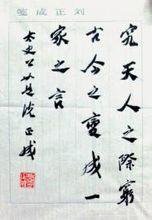 刘正成笺
究天人之際窮
古今之變成一
家之言
太史公如是说正成